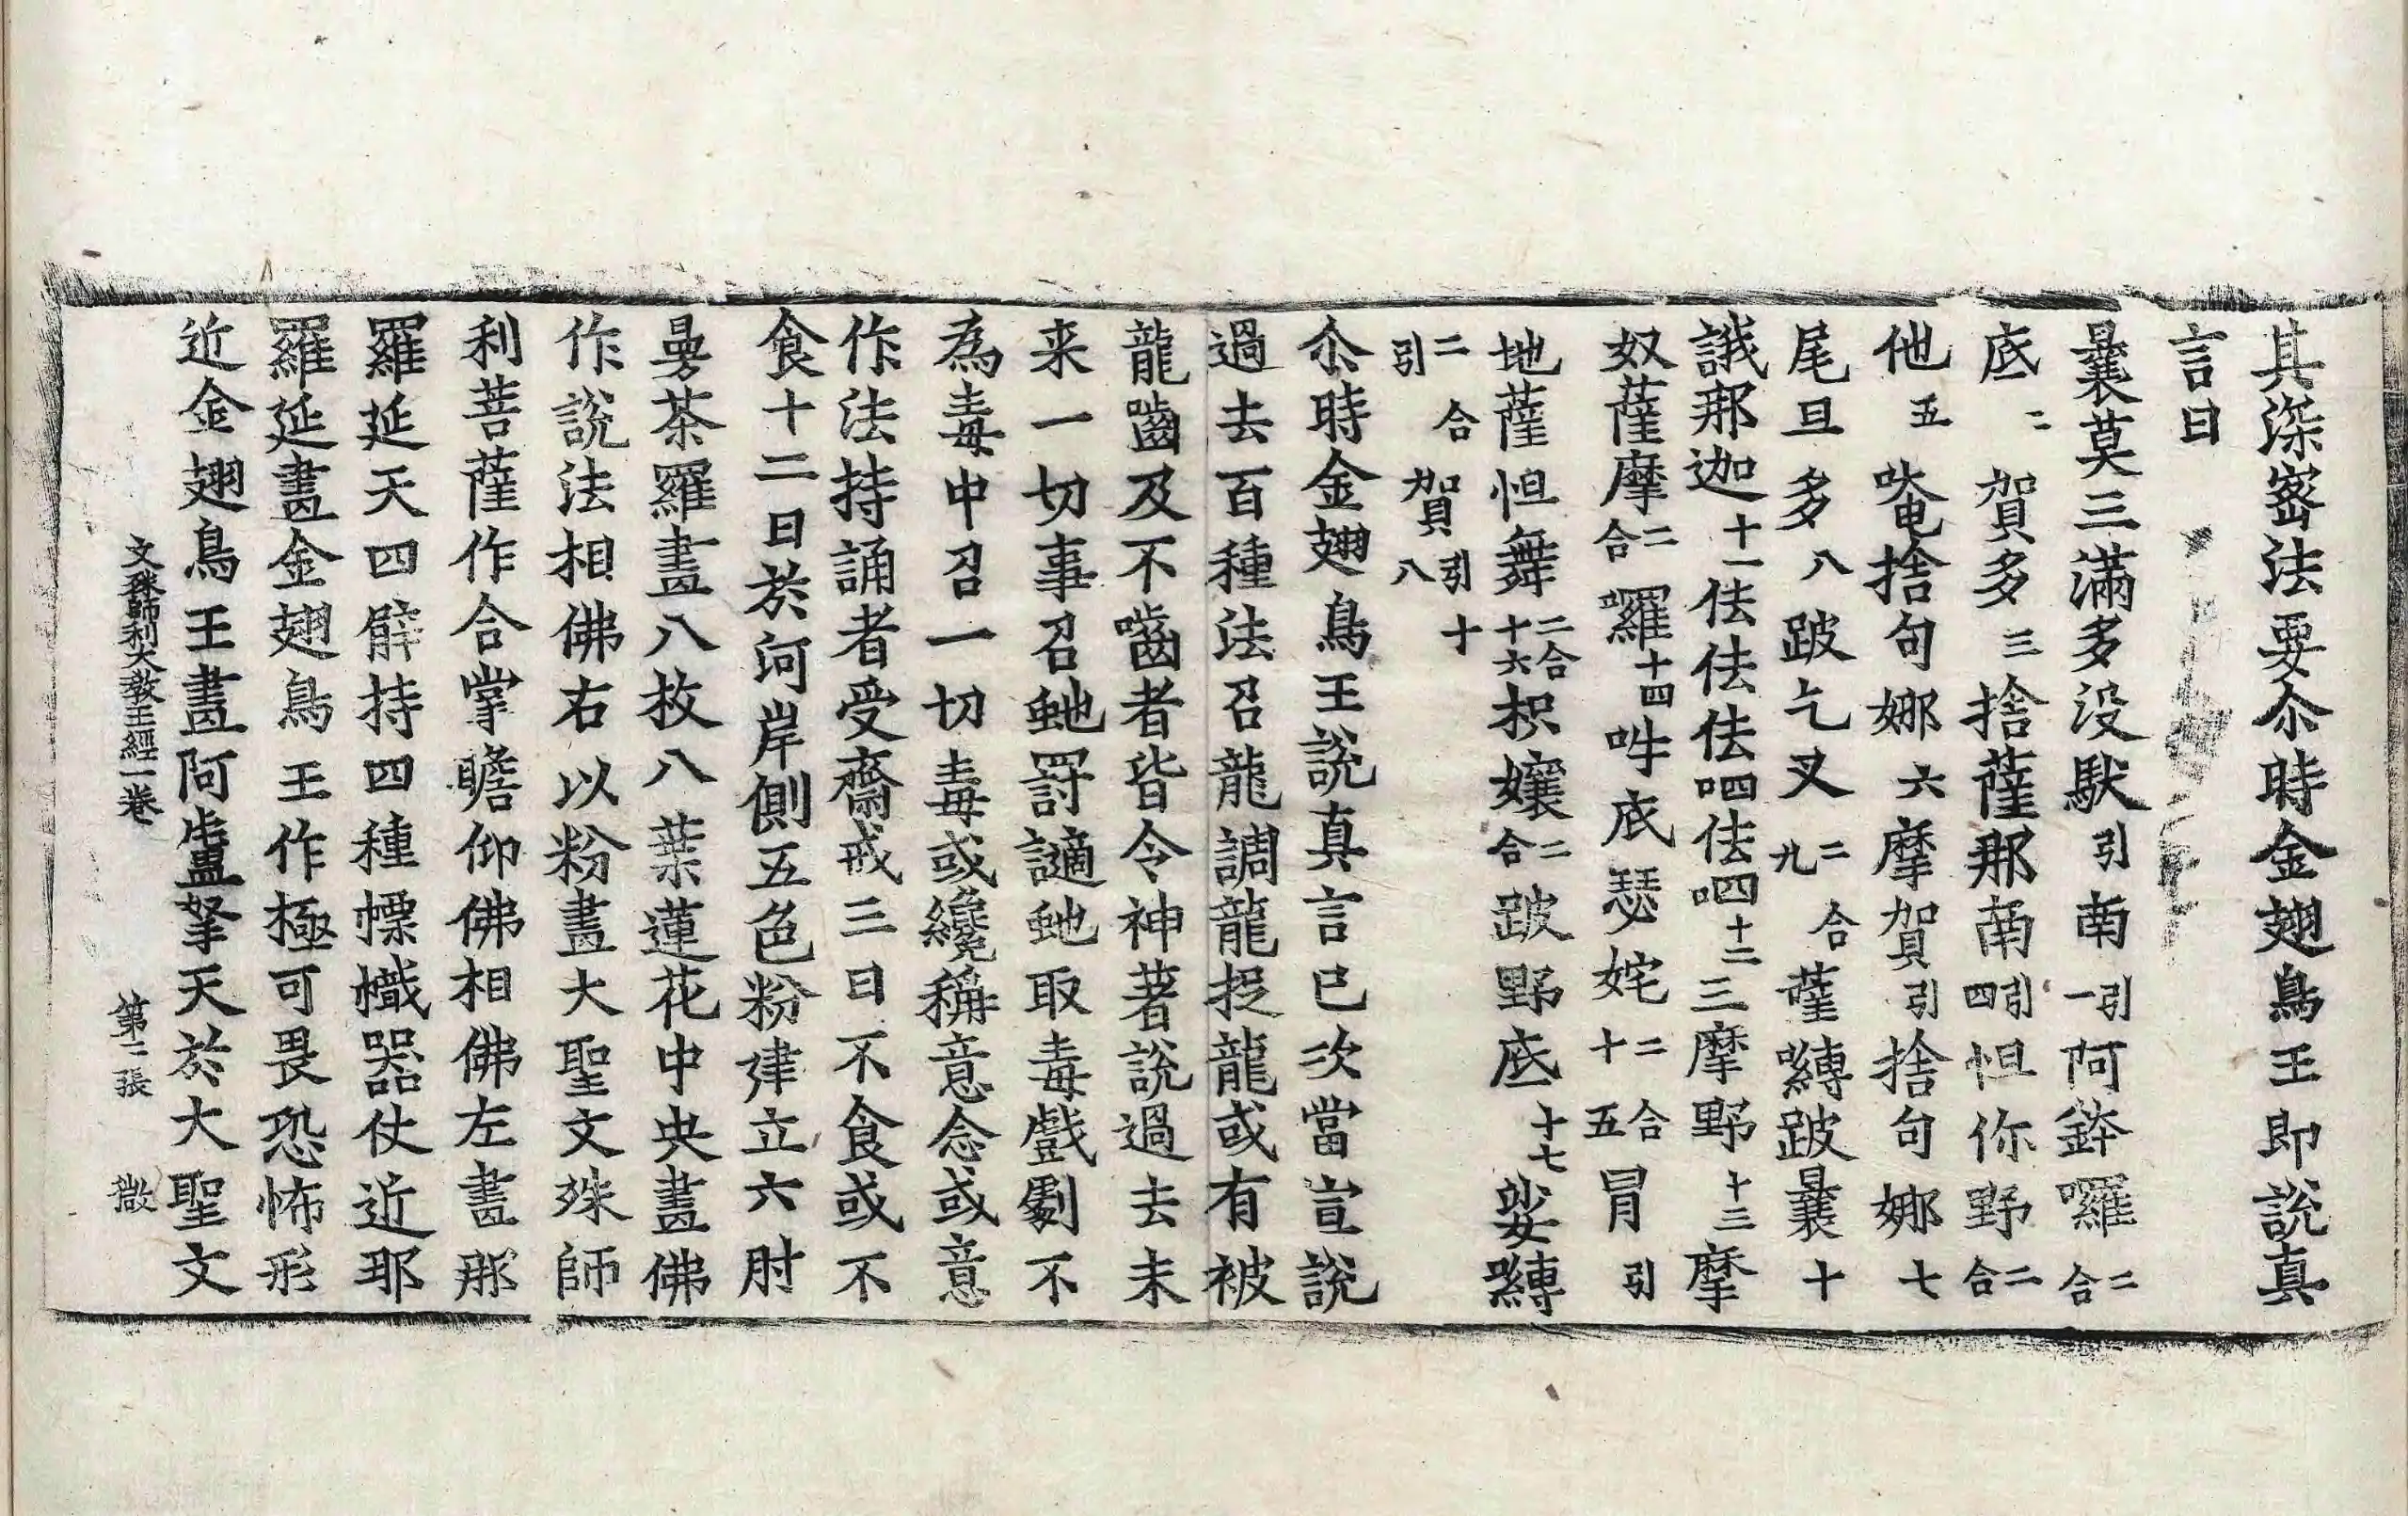 其深密法要尒時金翅鳥王即説真
言曰
曩莫三滿多没馱引南引一阿鉢囉二合
底二賀多三捨薩那南引四怛你野二合
他五唵捨句娜六摩賀引捨句娜七
尾旦多八跛乞叉二合九薩嚩跛曩十
誐那迦十一佉佉佉呬佉呬十二三摩野十三摩
奴薩摩二合囉十四吽底瑟姹二合十五冒引
地薩怛舞二合十六枳孃二合跛野底十七娑嚩
二合引賀引十八
尒時金翅鳥王説真言已次當宣説
過去百種法召龍調龍捉龍或有被
龍嚙及不嚙者皆令神著説過去未
来一切事召虵罰讁虵取毒戲劇不
為毒中召一切毒或纔稱意念或意
作法持誦者受齋戒三日不食或不
食十二日於河岸側五色粉建立六肘
曼荼羅畫八枚八葉蓮花中央畫佛
作説法相佛右以粉畫大聖文殊師
利菩薩作合掌瞻仰佛相佛左畫那
羅延天四臂持四種幖幟器仗近那
羅延畫金翅鳥王作極可畏恐怖形
近金翅鳥王畫阿盧拏天於大聖文
文殊師利大教王經一卷 第二張